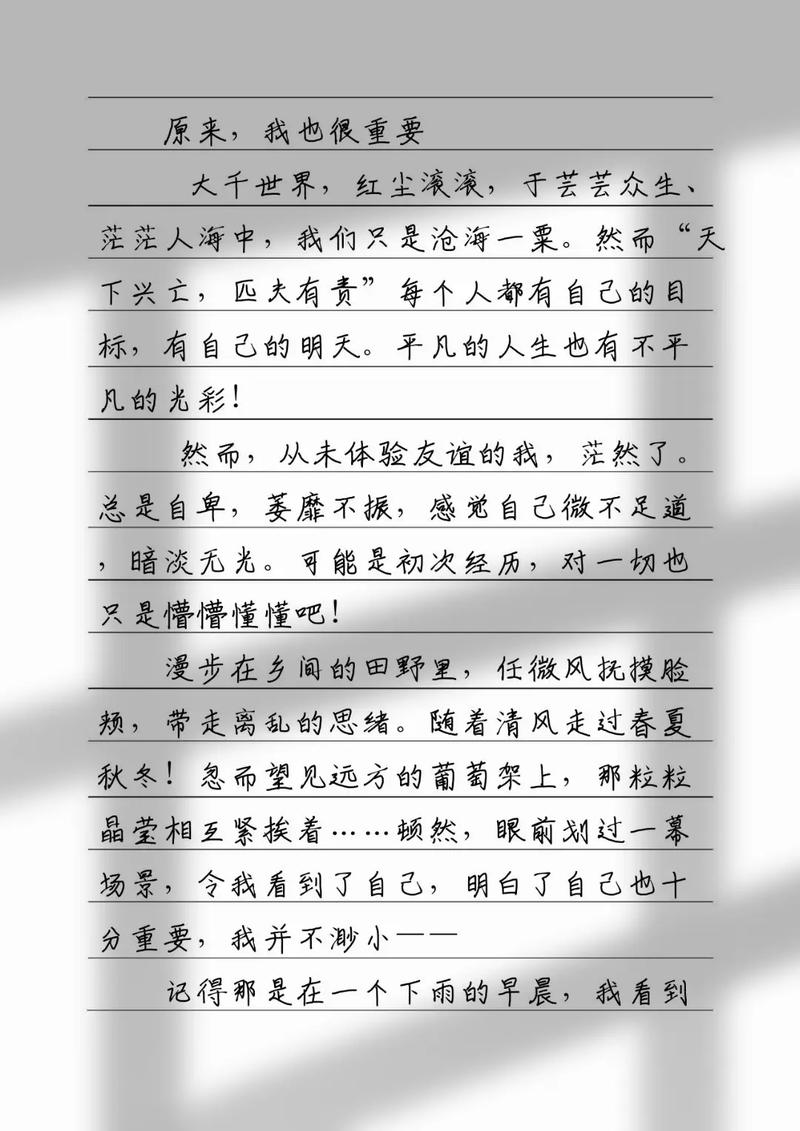 原来，我也很重要
大千世界，红尘滚滚，于芸芸众生、
茫茫人海中，我们只是沧海一粟。然而“天
下兴亡，匹夫有责”每个人都有自己的目
标，有自己的明天。平凡的人生也有不平
凡的光彩！
然而，从未体验友谊的我，茫然了。
总是自卑，萎靡不振，感觉自己微不足道
，暗淡无光。可能是初次经历，对一切也
只是懵懵懂懂吧！
漫步在乡间的田野里，任微风抚摸脸
颊，带走离乱的思绪。随着清风走过春夏
秋冬！忽而望见远方的葡萄架上，那粒粒
晶莹相互紧挨着……顿然，眼前划过一幕
场景，令我看到了自己，明白了自己也十
分重要，我并不渺小——
记得那是在一个下雨的早晨，我看到